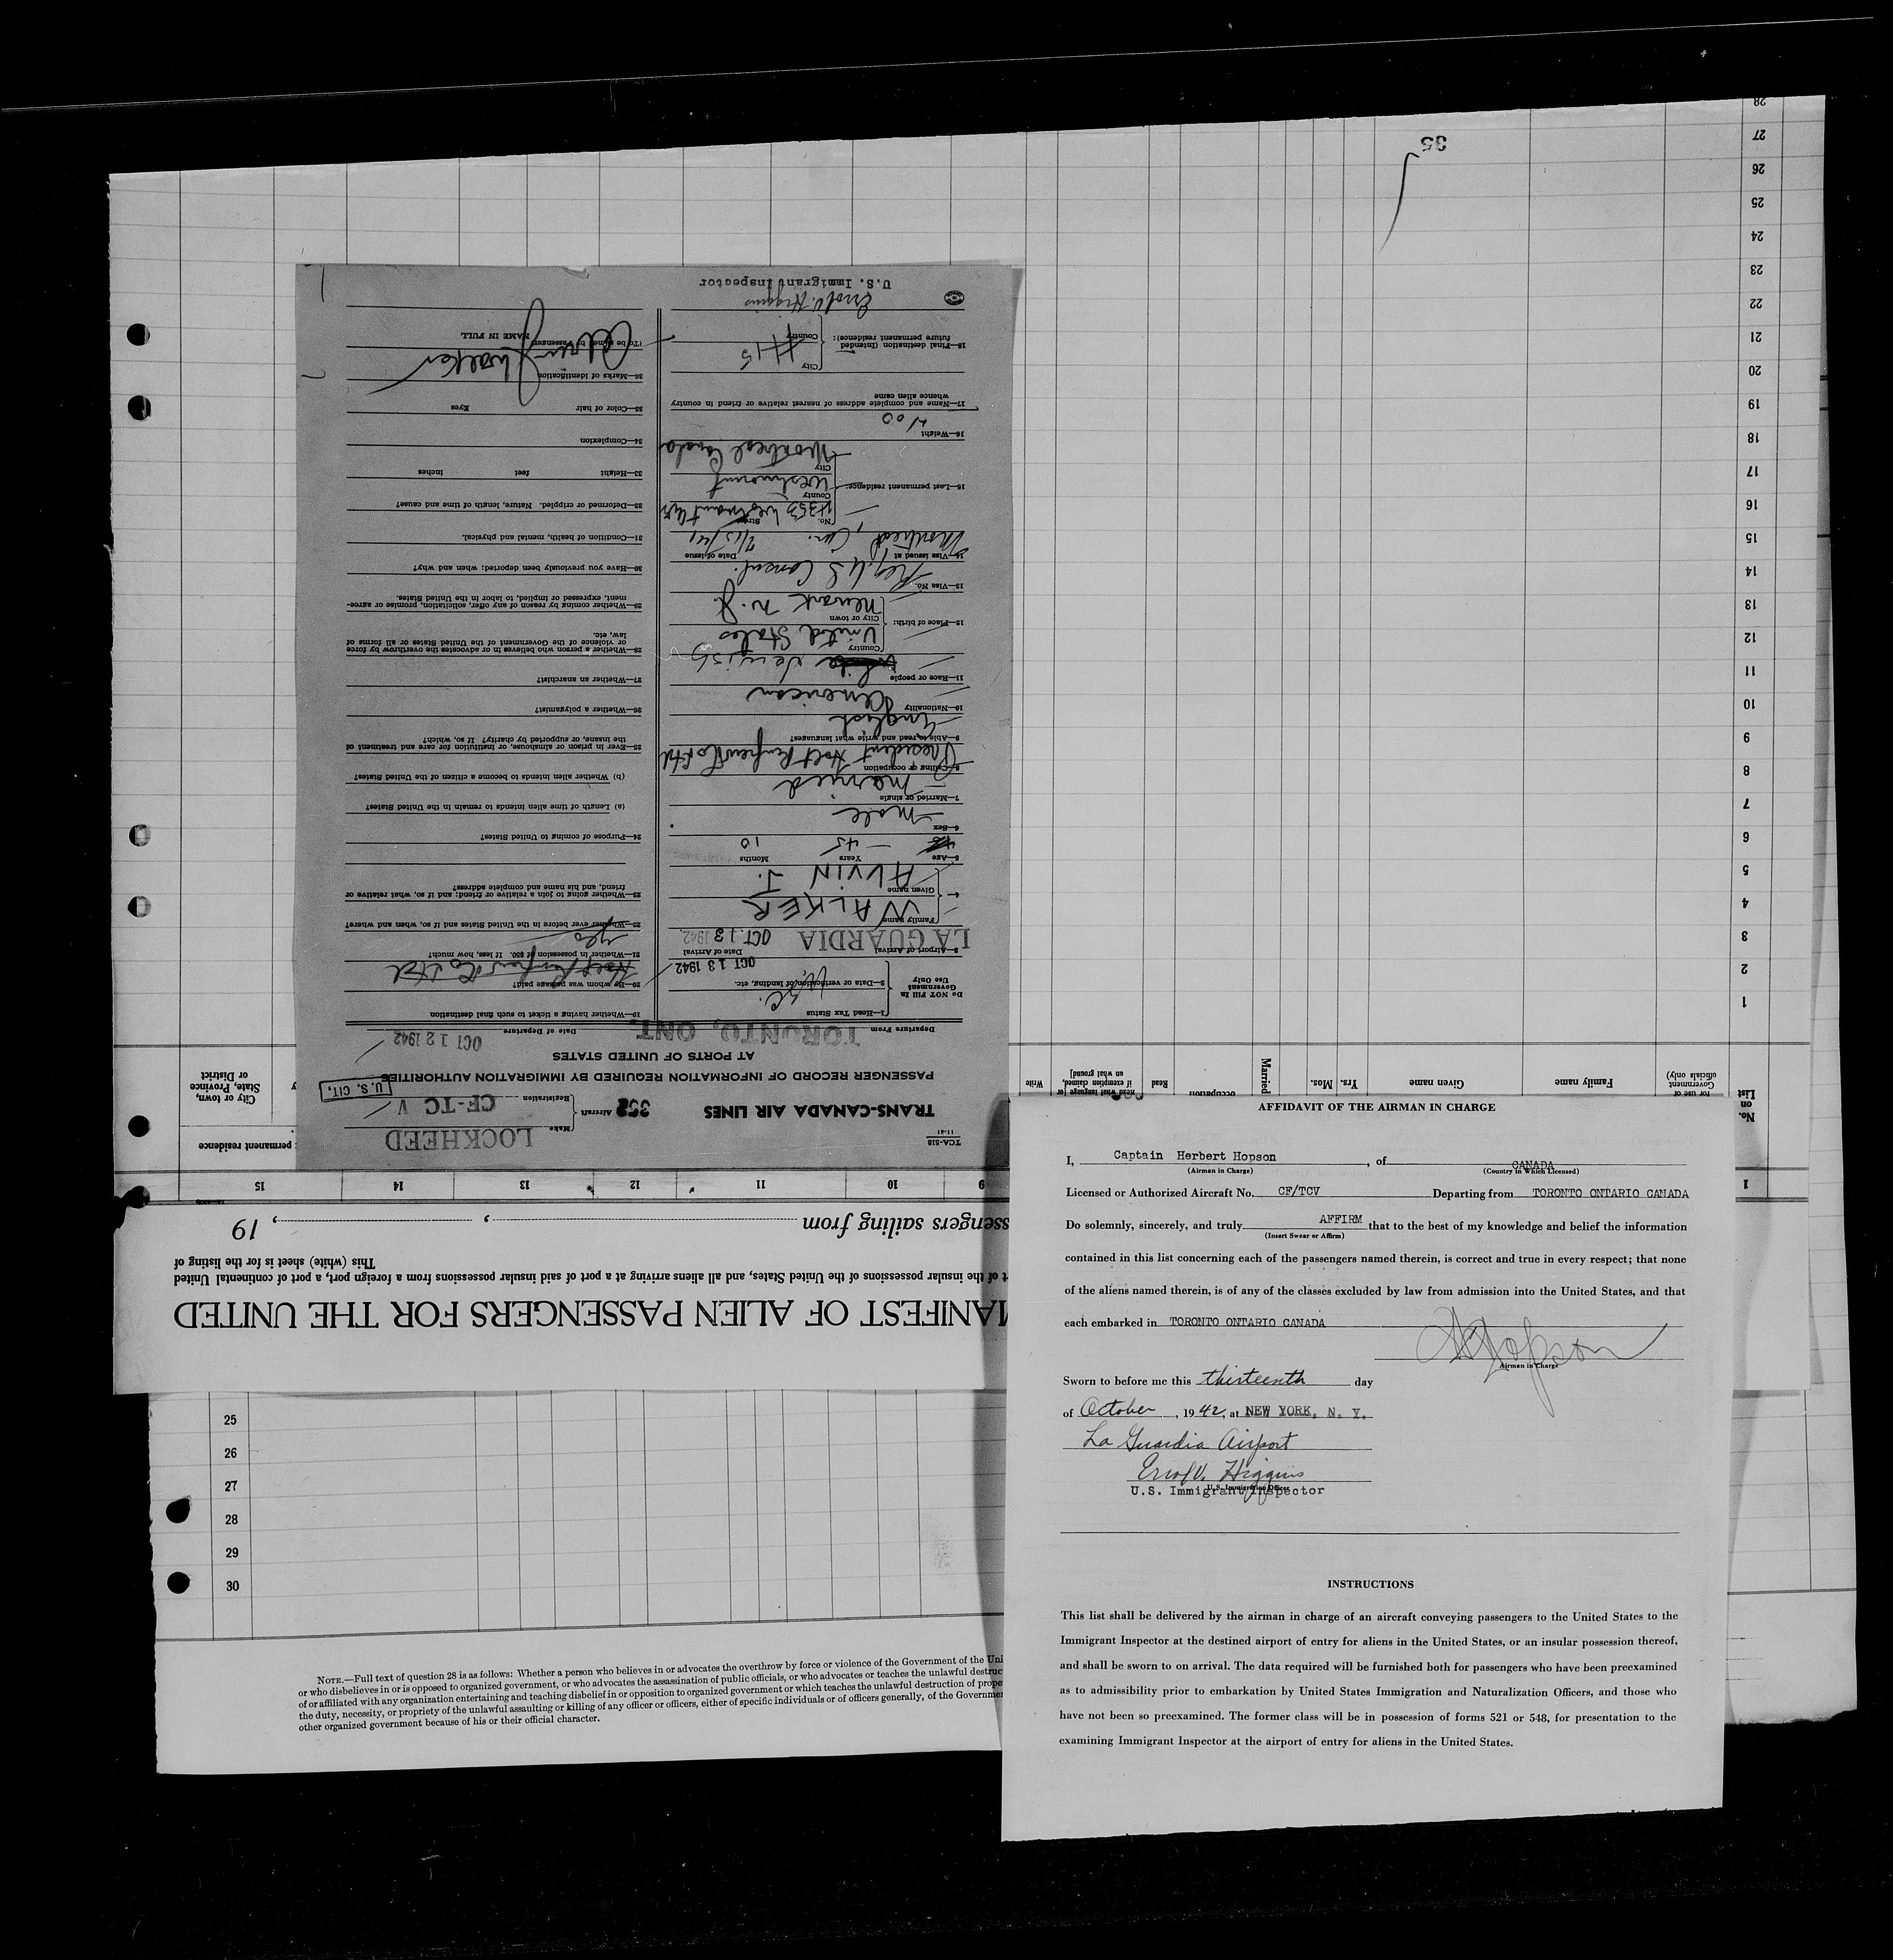 TCA-518
11-41
TRANS-CANADA AIR LINES
Aircraft
Make LOCKHEED
Registration CF-TC V
U. S. CIT.
PASSENGER RECORD OF INFORMATION REQUIRED BY IMMIGRATION AUTHORITIES
AT PORTS OF UNITED STATES
Departure From TORONTO, ONT. Date of Departure OCT 12 1942
Do NOT Fill In
Government
Use Only
1—Head Tax Status
2—Data or verification of landing, etc.
OCT 13 1942
3—Airport of Arrival LA GUARDIA
Date of Arrival OCT. 13 1942
Family name WALKER
Given name ALVIN J.
5—Age Years 45 Months 10
6—Sex Male
7—Married or single Married
8—Calling or occupation President Holt Renfrew Co Ltd
9—Able to read and write what languages? English
10—Nationality American
11—Race or people Jewish
12—Place of birth: Country United States
City or town Newark N. J.
13—Visa No. U S Consul.
14—Visa issued at Montreal, Can. Date of issue
15—Last permanent residence: No. Street 4353 Westmount Ave
County Westmount
City Montreal Canada
16—Weight
17—Name and complete address of nearest relative or friend in country
whence alien came
18—Final destination (Intended
future permanent residence):
City
Country
Errol V. Higgins
U.S. Immigrant Inspector
19—Whether having a ticket to such final destination
20—By whom was passage paid? Holt Renfrew Co Ltd
21—Whether in possession of $50. If less, how much? yes
22—Whether ever before in the United States and if so, when and where?
23—Whether going to join a relative or friend; and if so, what relative or
friend, and his name and complete address?
24—Purpose of coming to United States?
(a) Length of time alien intends to remain in the United States?
(b) Whether alien intends to become a citizen of the United States?
25—Ever in prison or almshouse, or institution for care and treatment of
the insane, or supported by charity? If so, which?
26—Whether a polygamist?
27—Whether an anarchist?
28—Whether a person who believes in or advocates the overthrow by force
or violence of the Government of the United States or all forms of
law, etc.
29—Whether coming by reason of any offer, solicitation, promise or agree-
ment, expressed or implied, to labor in the United States.
30—Have you previously been deported; when and why?
31—Condition of health, mental and physical.
Deformed or crippled. Nature, length of time and cause?
33—Height feet inches
34—Complexion
35—Color of hair Eyes
36—Marks of identification
(To be signed by Passenger) NAME IN FULL
Alvin J Walker
MANIFEST OF ALIEN PASSENGERS FOR THE UNITED
t of the insular possessions of the United States, and all aliens arriving at a port of said insular possessions from a foreign port, a port of continental United
This (white) sheet is for the listing of
ssengers sailing from , , 19
1 9 10 11 12 13 14 15
permanent residence
City or town,
State, Province
or District
No.
on
List
for use of
Government
officials only)
Family name
Given name
Yrs. Mos.
Married
occupation
Read
Read what language [or
if exemption claimed,
on what ground]
Write
1
2
3
4
5
6
7
8
9
10
11
12
13
14
15
16
17
18
19
20
21
22
23
24
25
26
27
28
35
AFFIDAVIT OF THE AIRMAN IN CHARGE
I, Captain Herbert Hopson, of CANADA
(Airman in Charge) (Country in Which Licensed)
Licensed or Authorized Aircraft No. CF/TCV Departing from TORONTO ONTARIO CANADA
Do solemnly, sincerely, and truly AFFIRM that to the best of my knowledge and belief the information
(Insert Swear or Affirm)
contained in this list concerning each of the passengers named therein, is correct and true in every respect; that none
of the aliens named therein, is of any of the classes excluded by law from admission into the United States, and that
each embarked in TORONTO ONTARIO CANADA
H Hopson
Airman in Charge
Sworn to before me this thirteenth day
of October, 1942, at NEW YORK, N. Y.
La Guardia Airport
Errol V. Higgins
U.S. Immigration Officer
U.S. Immigrant Inspector
INSTRUCTIONS
This list shall be delivered by the airman in charge of an aircraft conveying passengers to the United States to the
Immigrant Inspector at the destined airport of entry for aliens in the United States, or an insular possession thereof,
and shall be sworn to on arrival. The data required will be furnished both for passengers who have been preexamined
as to admissibility prior to embarkation by United States Immigration and Naturalization Officers, and those who
have not been so preexamined. The former class will be in possession of forms 521 or 548, for presentation to the
examining Immigrant Inspector at the airport of entry for aliens in the United States.
25
26
27
28
29
30
NOTE.—Full text of question 28 is as follows: Whether a person who believes in or advocates the overthrow by force or violence of the Government of the Uni
or who disbelieves in or is opposed to organized government, or who advocates the assassination of public officials, or who advocates or teaches the unlawful destruc
of or affiliated with any organization entertaining and teaching disbelief in or opposition to organized government or which teaches the unlawful destruction of prope
the duty, necessity, or propriety of the unlawful assaulting or killing of any officer or officers, either of specific individuals or of officers generally, of the Governmen
other organized government because of his or their official character.